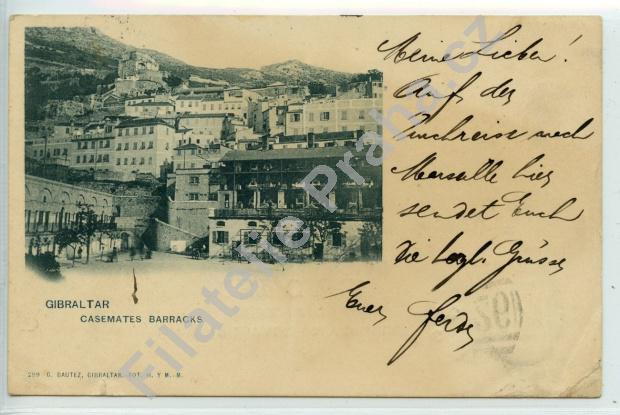 Meine Lieben!
Auf der
Durchreise nach
Marseille hier
sendet Euch
die hzgl. Grüsse
Euer Ferdi
GIBRALTAR
CASEMATES BARRACKS
299 G. BAUTEZ, GIBRALTAR. FOT. H. Y M.-M.
Filatelie Praha.cz